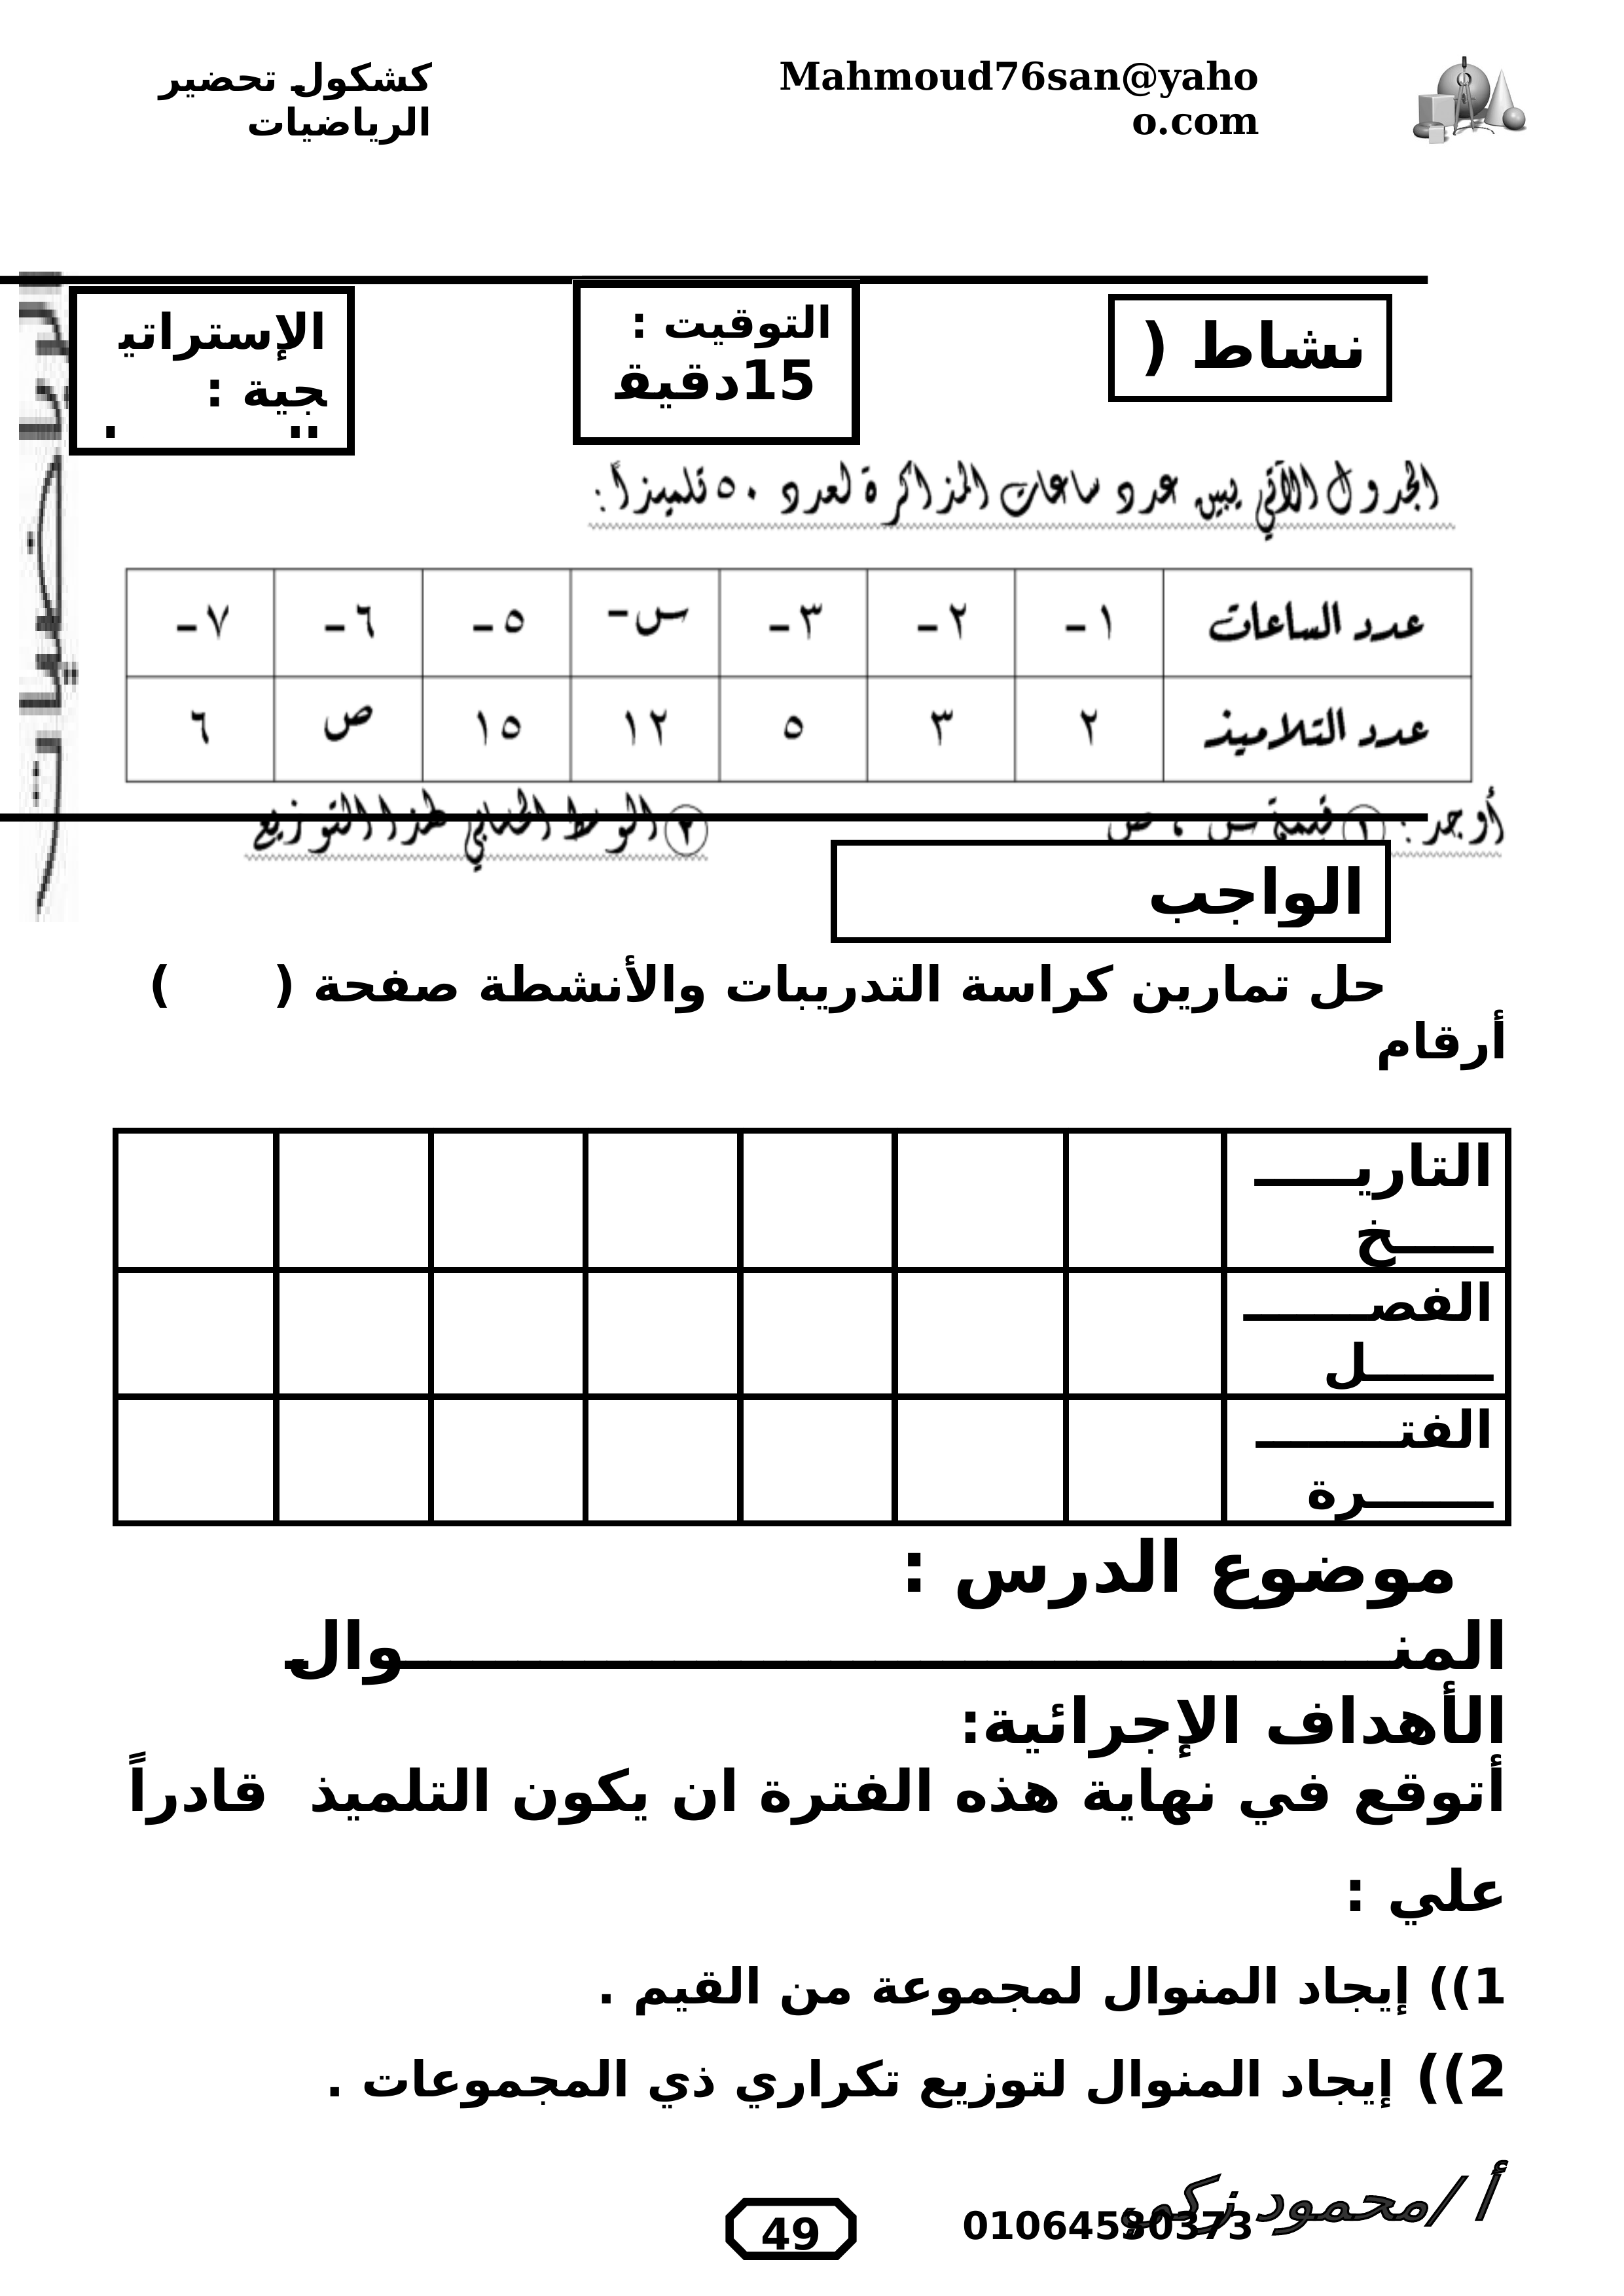 كشكول تحضير
الرياضيات
Mahmoud76san@yaho
o.com
نشاط (
التوقيت :
15دقيق
الإستراتي
جية :
الجدول الآتي يبين عدد ساعات المذاكرة لعدد ٥٠ تلميذاً :
عدد الساعات ١ – ٢ – ٣ – س – ٥ – ٦ – ٧ –
عدد التلاميذ ٢ ٣ ٥ ١٢ ١٥ ص ٦
أوجد : ١ قيمة س ، ص ٢ الوسط الحسابي لهذا التوزيع
الرياضيات
الواجب
حل تمارين كراسة التدريبات والأنشطة صفحة ( )
أرقام
التاريـــــ
ـــــخ
الفصـــــــ
ـــــــل
الفتـــــــ
ـــــــرة
موضوع الدرس :
المنـــــــــــــــــــــــــــــــــوال
الأهداف الإجرائية:
أتوقع في نهاية هذه الفترة ان يكون التلميذ قادراً
علي :
1)) إيجاد المنوال لمجموعة من القيم .
2)) إيجاد المنوال لتوزيع تكراري ذي المجموعات .
أ /محمود زكي
01064580373
49